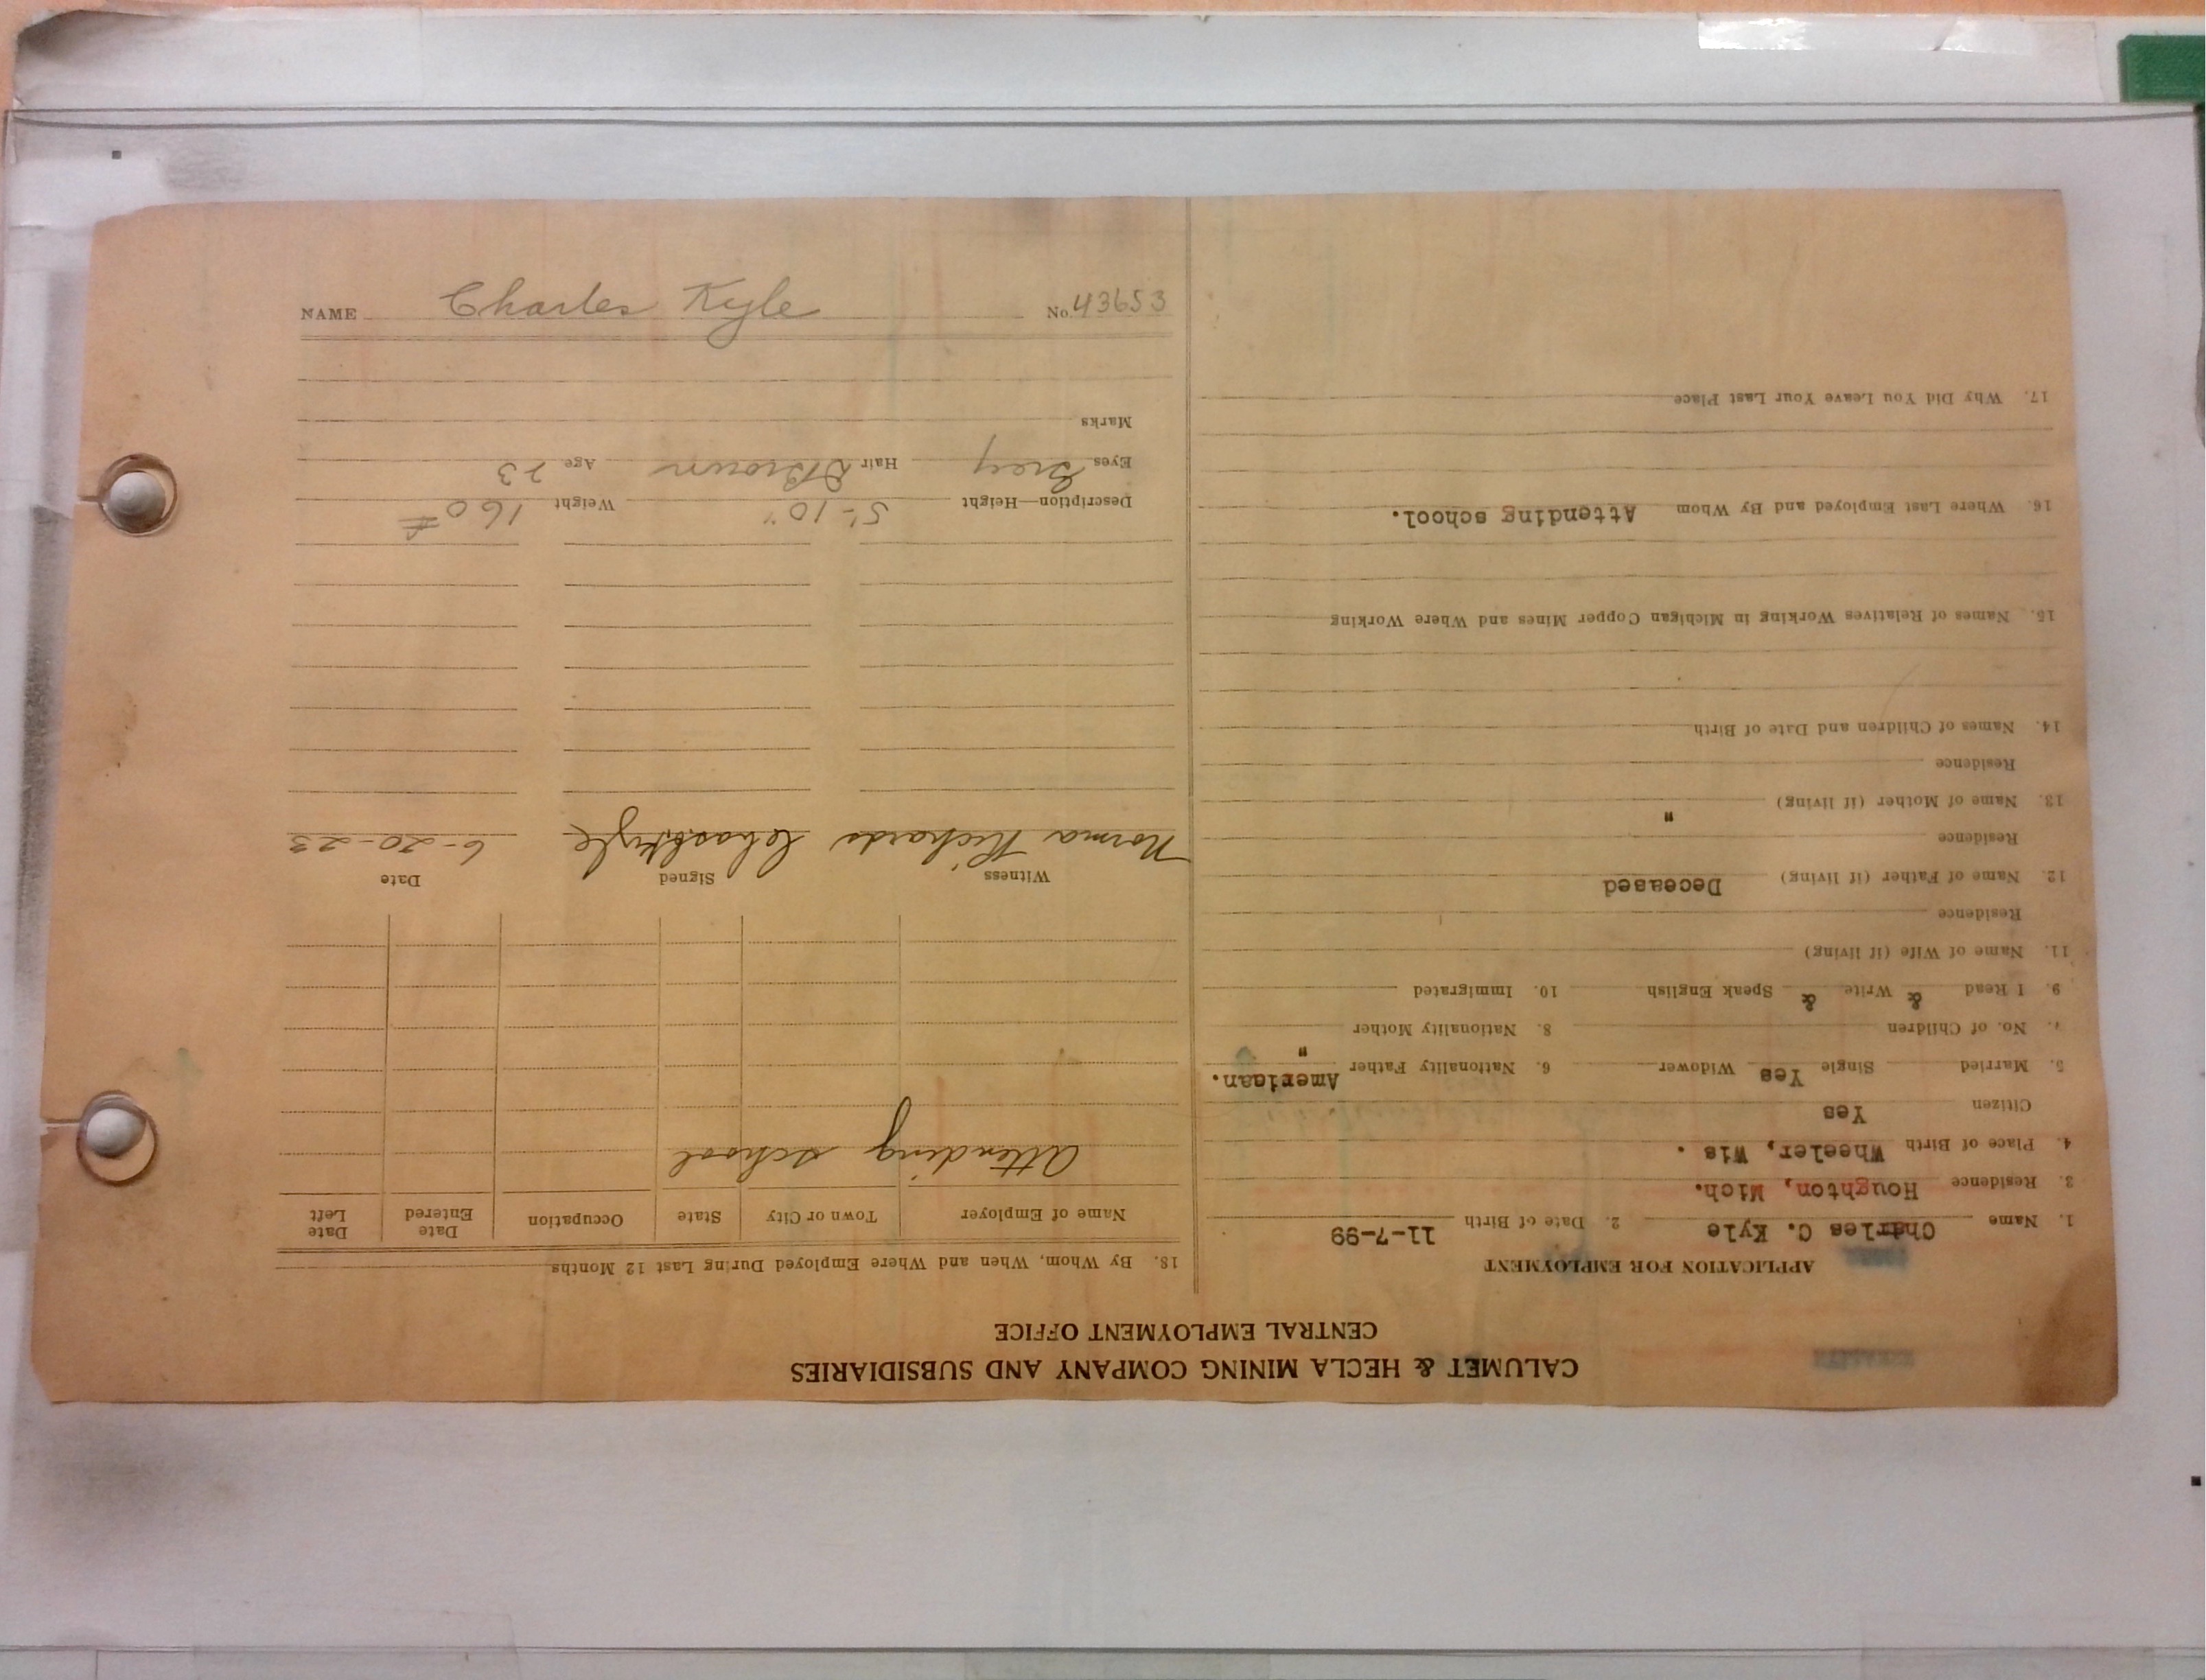 NAME Charles Kyle No. 43653
CALUMET & HECLA MINING COMPANY AND SUBSIDIARIES
CENTRAL EMPLOYMENT OFFICE
APPLICATION FOR EMPLOYMENT
1. Name Charles C. Kyle 2. Date of Birth 11-7-99
3. Residence Houghton, Mich.
4. Place of Birth Wheeler, Wis.
Citizen Yes
5. Married Single Yes Widower 6. Nationality Father American.
7. No. of Children 8. Nationality Mother "
9. I Read & Write & Speak English 10. Immigrated
11. Name of Wife (if living)
Residence
12. Name of Father (if living) Deceased
Residence
13. Name of Mother (if living) "
Residence
14. Names of Children and Date of Birth
15. Names of Relatives Working in Michigan Copper Mines and Where Working
16. Where Last Employed and By Whom Attending school.
17. Why Did You Leave Your Last Place
18. By Whom, When and Where Employed During Last 12 Months
Name of Employer Town or City State Occupation Date Entered Date Left
Attending school
Witness Signed Date
Norma Richards Chas C Kyle 6-20-23
Description—Height 5'-10" Weight 160#
Eyes Grey Hair D Brown Age 23
Marks